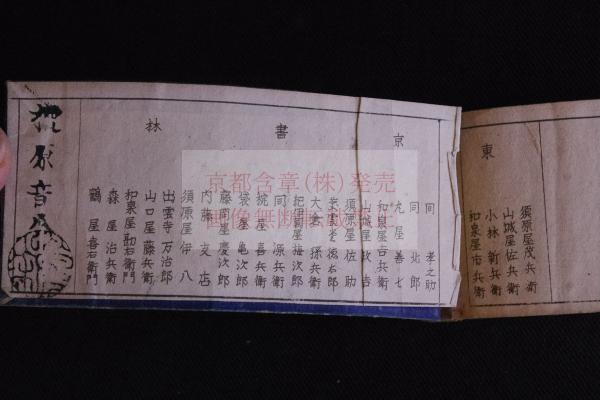 東
京
書
林
須原屋茂兵衛
山城屋佐兵衛
小林新兵衛
和泉屋市兵衛
同 孝之助
同
丸屋善七
和泉屋吉兵衛
山城屋政吉
須原屋佐助
大倉孫兵衛
同 源兵衛
椀屋喜兵衛
袋屋亀次郎
藤岡屋慶次郎
内藤支店
須原屋伊八
出雲寺万治郎
山口屋藤兵衛
和泉屋勘右衛門
森屋治兵衛
鶴屋喜右衛門
京都含章(株)発売
画像無断